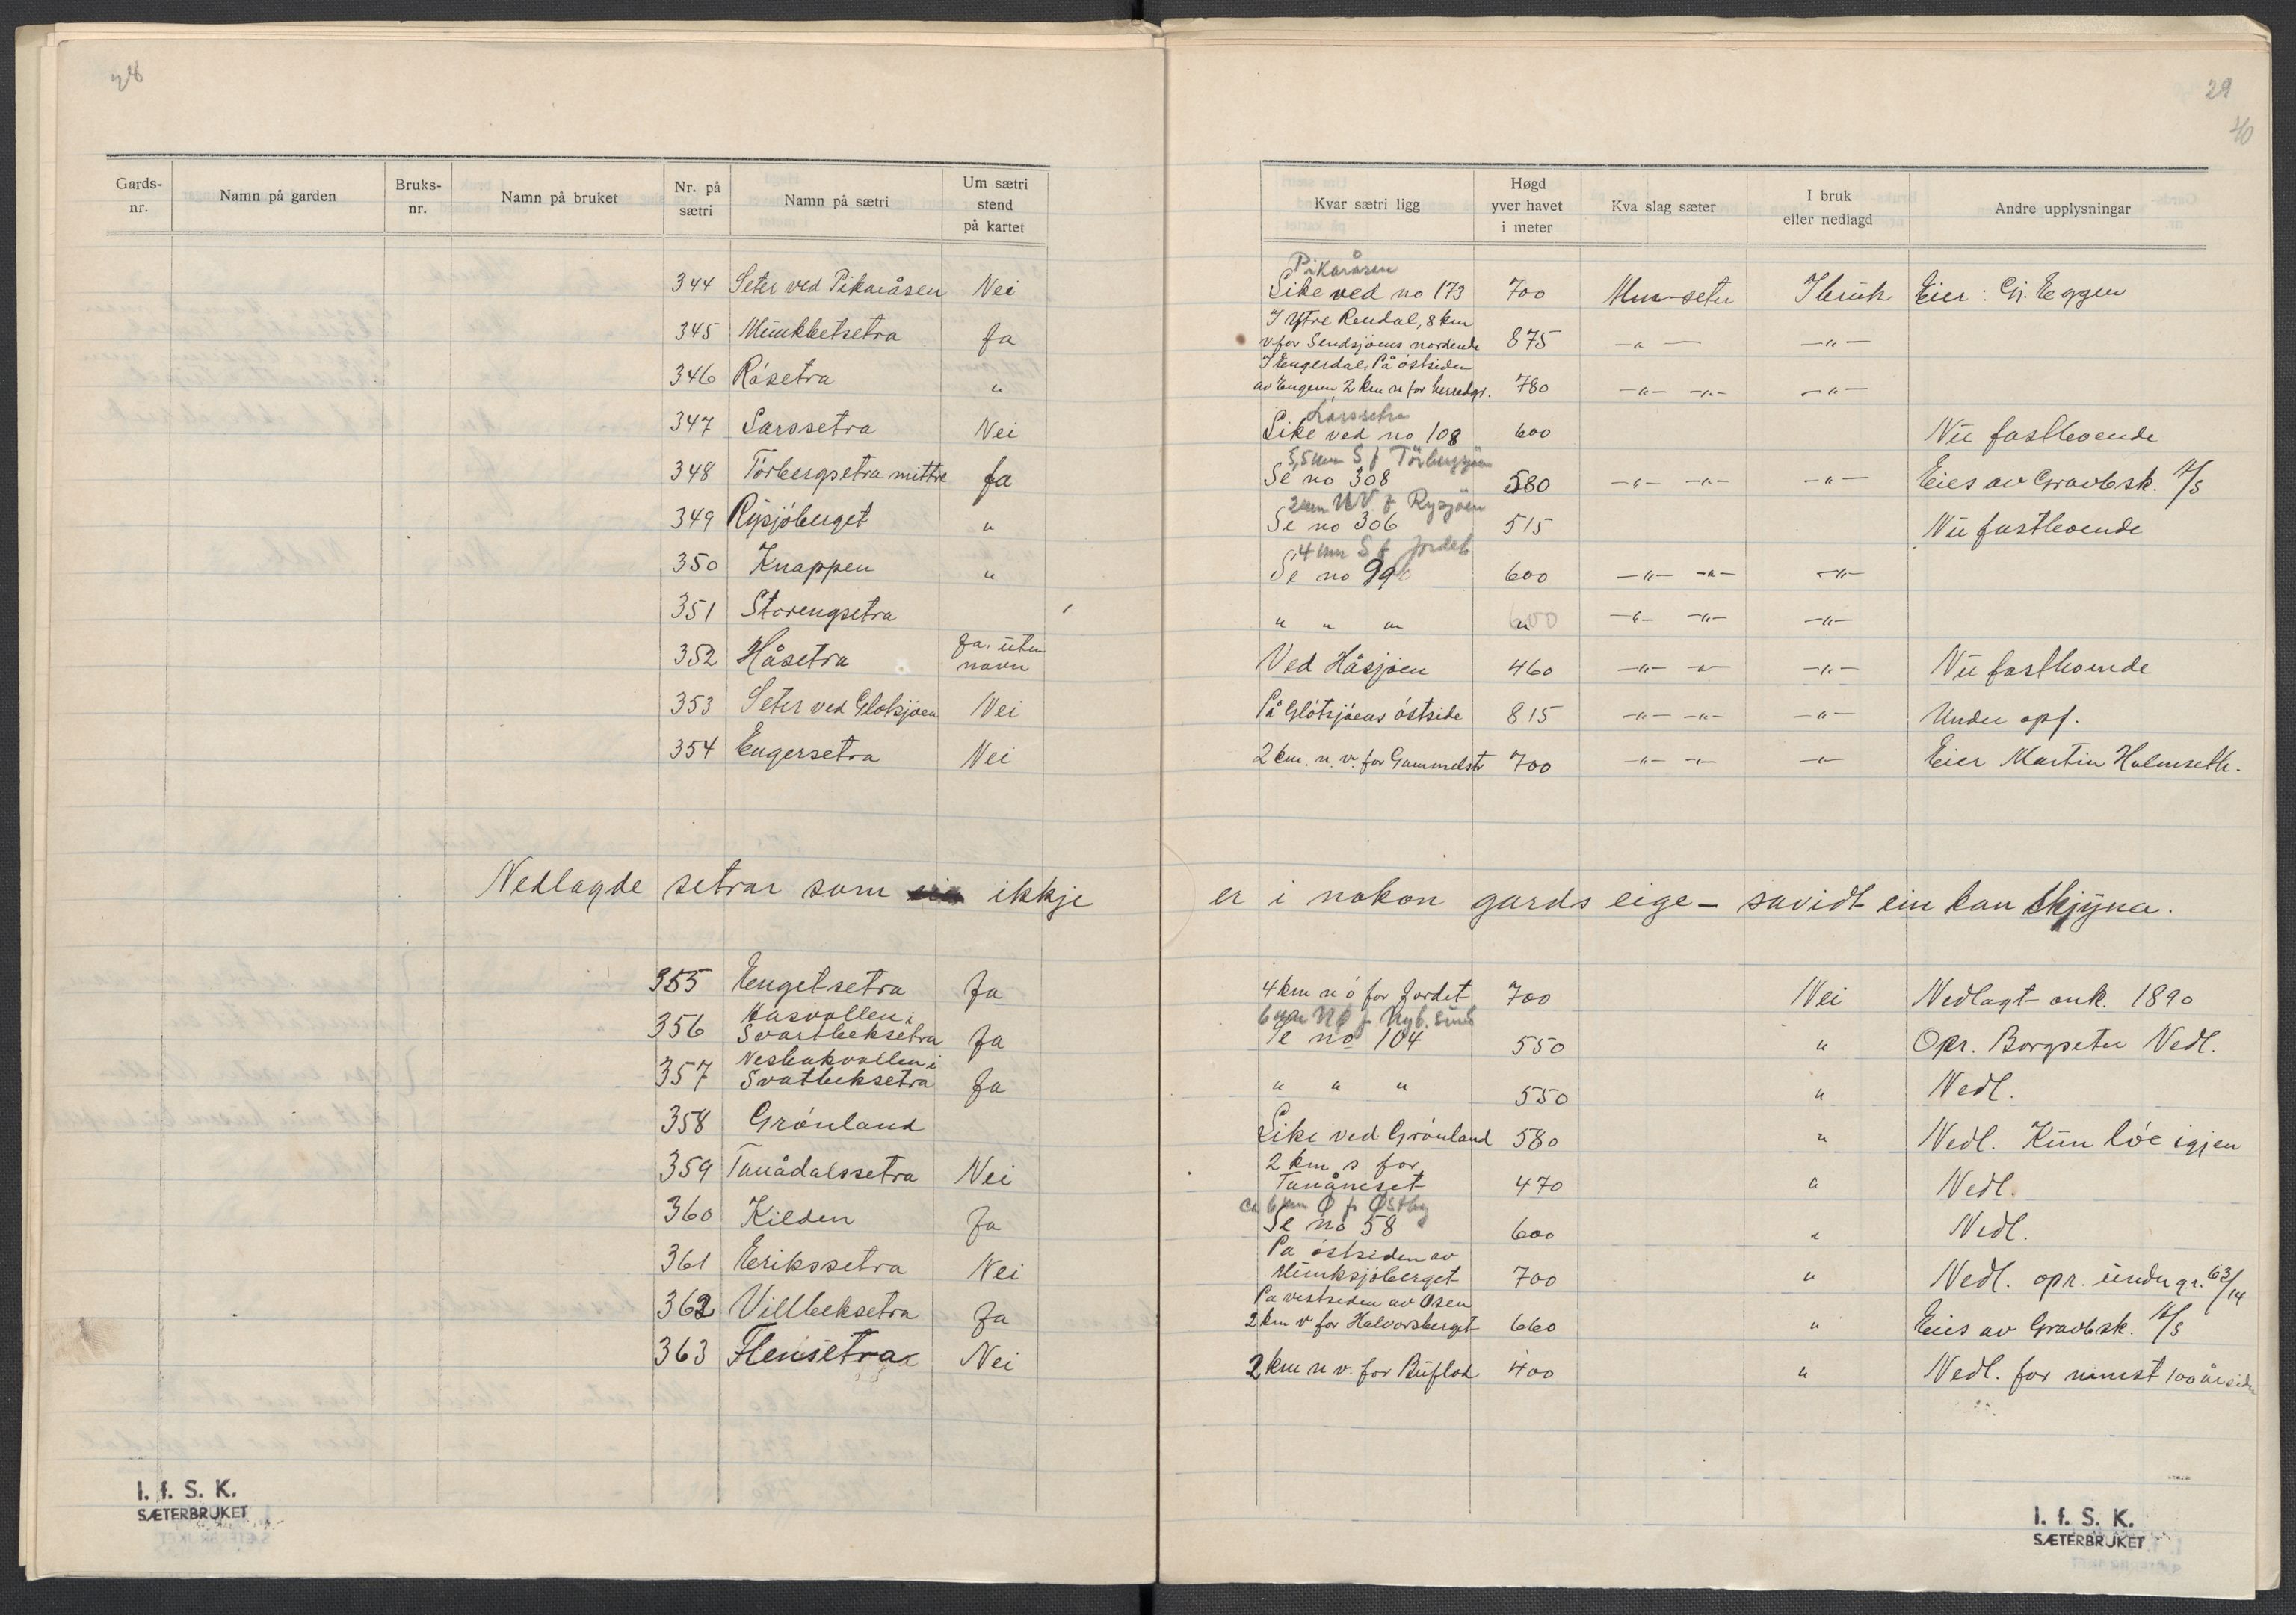 28
29
40
Gards-nr. Namn på garden Bruks-nr. Namn på bruket Nr. på sætri Namn på sætri Um sætri stend på kartet Kvar sætri ligg Høgd yver havet i meter Kva slag sæter I bruk eller nedlagd Andre upplysningar
Pikaråsen
344 Seter ved Pikaråsen Nei Like ved no 173 700 seter I bruk Eier: Chr. Eggen
I Ytre Rendal, 8 km
345 Munkbetsetra Ja v for Sendsjøens nordende 875 -"- -"-
I Engerdal. På østsiden
346 Røsetra " av Engeren 2 km n for herredgr. 780 -"- -"- -"-
Larssetra
347 Larssetra Nei Like ved no 108 600 Nu fastboende
5,5 km S f Törbergsjøen
348 Törbergsetra mittre Ja Se no 308 580 -"- -"- -"- Eies av Gravbsk. A/S
2 km NV f Rysjøen
349 Rysjöberget " Se no 306 515 Nu fastboende
4 km S f Jordet
350 Knappen " Se no 99 600 -"- -"- -"-
351 Storengsetra " " " " -"- -"- -"-
352 Håsetra Ja. uten navn Ved Håsjøen 460 -"- -"- -"- Nu fastboende
353 Seter ved Glotsjøen Nei På Glötsjöens östside 815 -"- -"- -"- Under opf.
354 Engersetra Nei 2 km. n. v. for Gammelstr 700 -"- -"- -"- Eier Martin Holmseth.
Nedlagde setrar som ikkje er i nokon gards eige - savidt ein kan skjÿna.
355 Engetsetra Ja 4 km n ö for Jordet 700 Nei Nedlagt omk. 1890
Husvollen i 6 km NØ f Nyb. sund
356 Svartbeksetra Ja Se no 104 550 " Opr. Borgseter Nedl.
Nesbakvollen i
357 Svatbeksetra Ja " " " 550 " Nedl.
358 Grönland Like ved Grönland 580 " Nedl. Kun löe igjen
2 km s for
359 Tanådalssetra Nei Tanåneset 470 " Nedl.
ca 6 km Ø f Østby
360 Kilden Ja Se no 58 600 " Nedl.
På östsiden av
361 Erikssetra Nei Munksjöberget 700 " Nedl. opr. under gr. 63/14
På vestsiden av Osen
362 Villbeksetra Ja 2 km v for Halvorsberget 660 " Eies av Gravbsk. A/S
363 Flensetra Nei 2 km n v. for Buflod 400 " Nedl. for minst 100 år siden
I. f. S. K.
SÆTERBRUKET
I. f. S. K.
SÆTERBRUKET